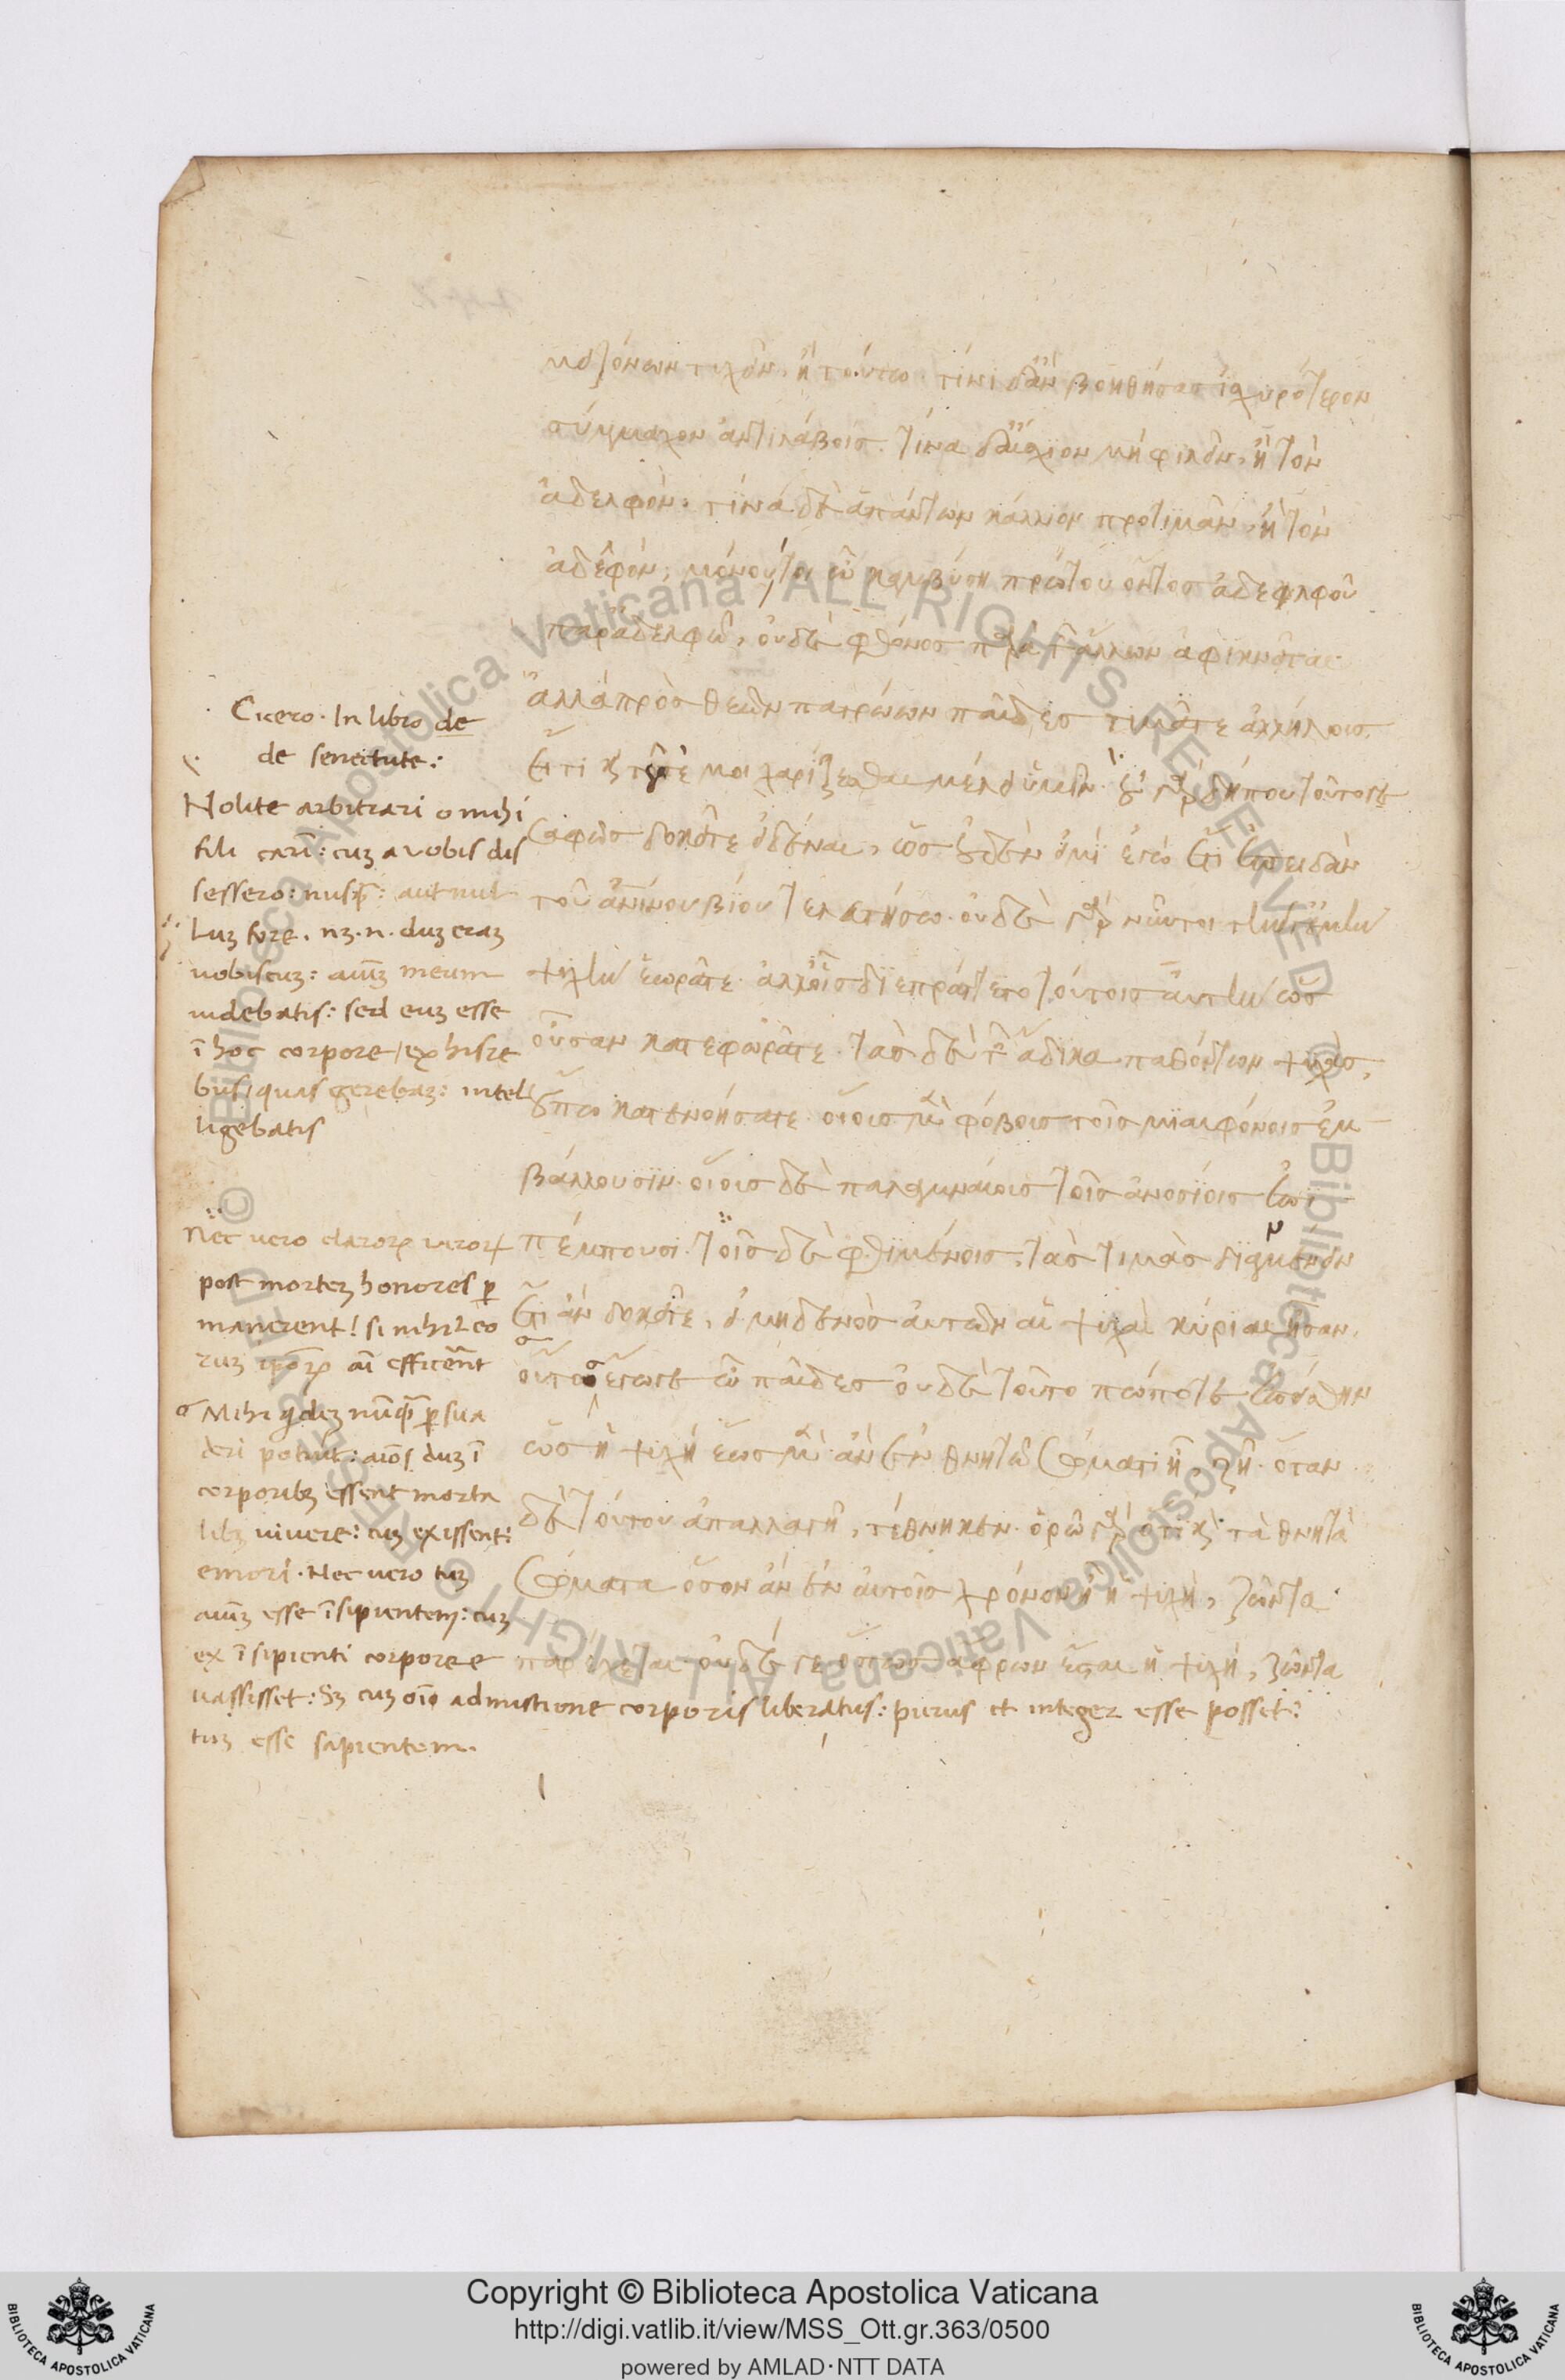 μείζόνων τυχεῖν, ἢ τούτω· τίνι δ' ἂν βοηθήσας ἰσχυρότερον
σύμμαχον ἀντιλάβοις. τίνα δ' αἴσχιον μὴ φιλεῖν, ἢ τὸν
ἀδελφόν· τίνα δὲ ἁπάντων κάλλιον προτιμᾶν, ἢ τὸν
ἀδελφόν; μόνου τοι ὦ καμβύση πρώτου ὄντος ἀδελφοῦ
παρ' ἀδελφῶ, οὐδὲ φθόνος παρὰ τῶν ἄλλων ἀφικνεῖται·
ἀλλὰ πρὸς θεῶν πατρώων παῖδες τιμᾶτε ἀλλήλους,
εἴ τι καὶ τοῦ ἐμοὶ χαρίζεσθαι μέλει ὑμῖν· οὐ γὰρ δήπου τοῦτό γε
σαφῶς δοκεῖτε εἰδέναι, ὡς οὐδὲν εἰμὶ ἐγὼ ἔτι ἐπειδὰν
τοῦ ἀνίνου βίου τελευτήσω· οὐδὲ γὰρ νῦν τοι τὴν ἐμὴν
ψυχὴν ἑωρᾶτε· ἀλλ' οἷς διεπράττετο τούτοις αὐτὴν ὡς
οὖσαν κατεφωρᾶτε. τὰς δὲ τῶν ἄδικα παθόντων ψυχὰς,
οὔπω κατενοήσατε οἵους μὲν φόβους τοῖς μιαιφόνοις ἐμ
βάλλουσιν· οἵους δὲ παλαμναίους τοῖς ἀνοσίοις ἐπι
πέμπουσι. τοῖς δὲ φθιμένοις, τὰς τιμὰς διαμένειν
ἔτι ἂν δοκεῖτε, εἰ μηδενὸς αὐτῶν αἱ ψυχαὶ κύριαι ἦσαν.
οὔτοι ἔγωγε ὦ παῖδες οὐδὲ τοῦτο πώποτε ἐπείσθην
ὡς ἡ ψυχὴ ἕως μὲν ἂν ἐν θνητῶ σώματι ἦ, ζῆ· ὅταν
δὲ τούτου ἀπαλλαγῆ, τέθνηκεν· ὁρῶ γὰρ ὅτι καὶ τὰ θνητὰ
σώματα ὅσον ἂν ἐν αὐτοῖς χρόνον ἦ ἡ ψυχὴ, ζῶντα
παρέχεται· οὐδέ γε ὅπως ἄφρων ἔσται ἡ ψυχὴ, ζῶντα
Cicero. In libro de
de senectute:
Nolite arbitrari o mihi
fili cari: cuz a vobis dis
sessero: nusq̃: aut nul
luz fore. nz. n. duz eraz
vobiscuz: aiuz meum
videbatis: sed euz esse
ĩ hoc corpore / ex his re
bus / quas gerebaz: intel
ligebatis
Nec vero claroꝝ viroꝝ
post mortez honores ꝑ
manerent! si nihil eo
ruz ipoꝝ ai efficerẽt
Mihi quidez nunq̃ ꝑsua
deri potuit: aios duz ĩ
corporibꝫ essent morta
libꝫ vivere: cuz exissent:
emori. Nec vero tuz
aiuz esse ĩsipientem: cuz
ex ĩsipienti corpore e
vassisset: Sꝫ cuz oĩo admistione corporis liberatus: purus et integer esse posset:
tuz esse sapientem.
Copyright © Biblioteca Apostolica Vaticana
http://digi.vatlib.it/view/MSS_Ott.gr.363/0500
powered by AMLAD·NTT DATA